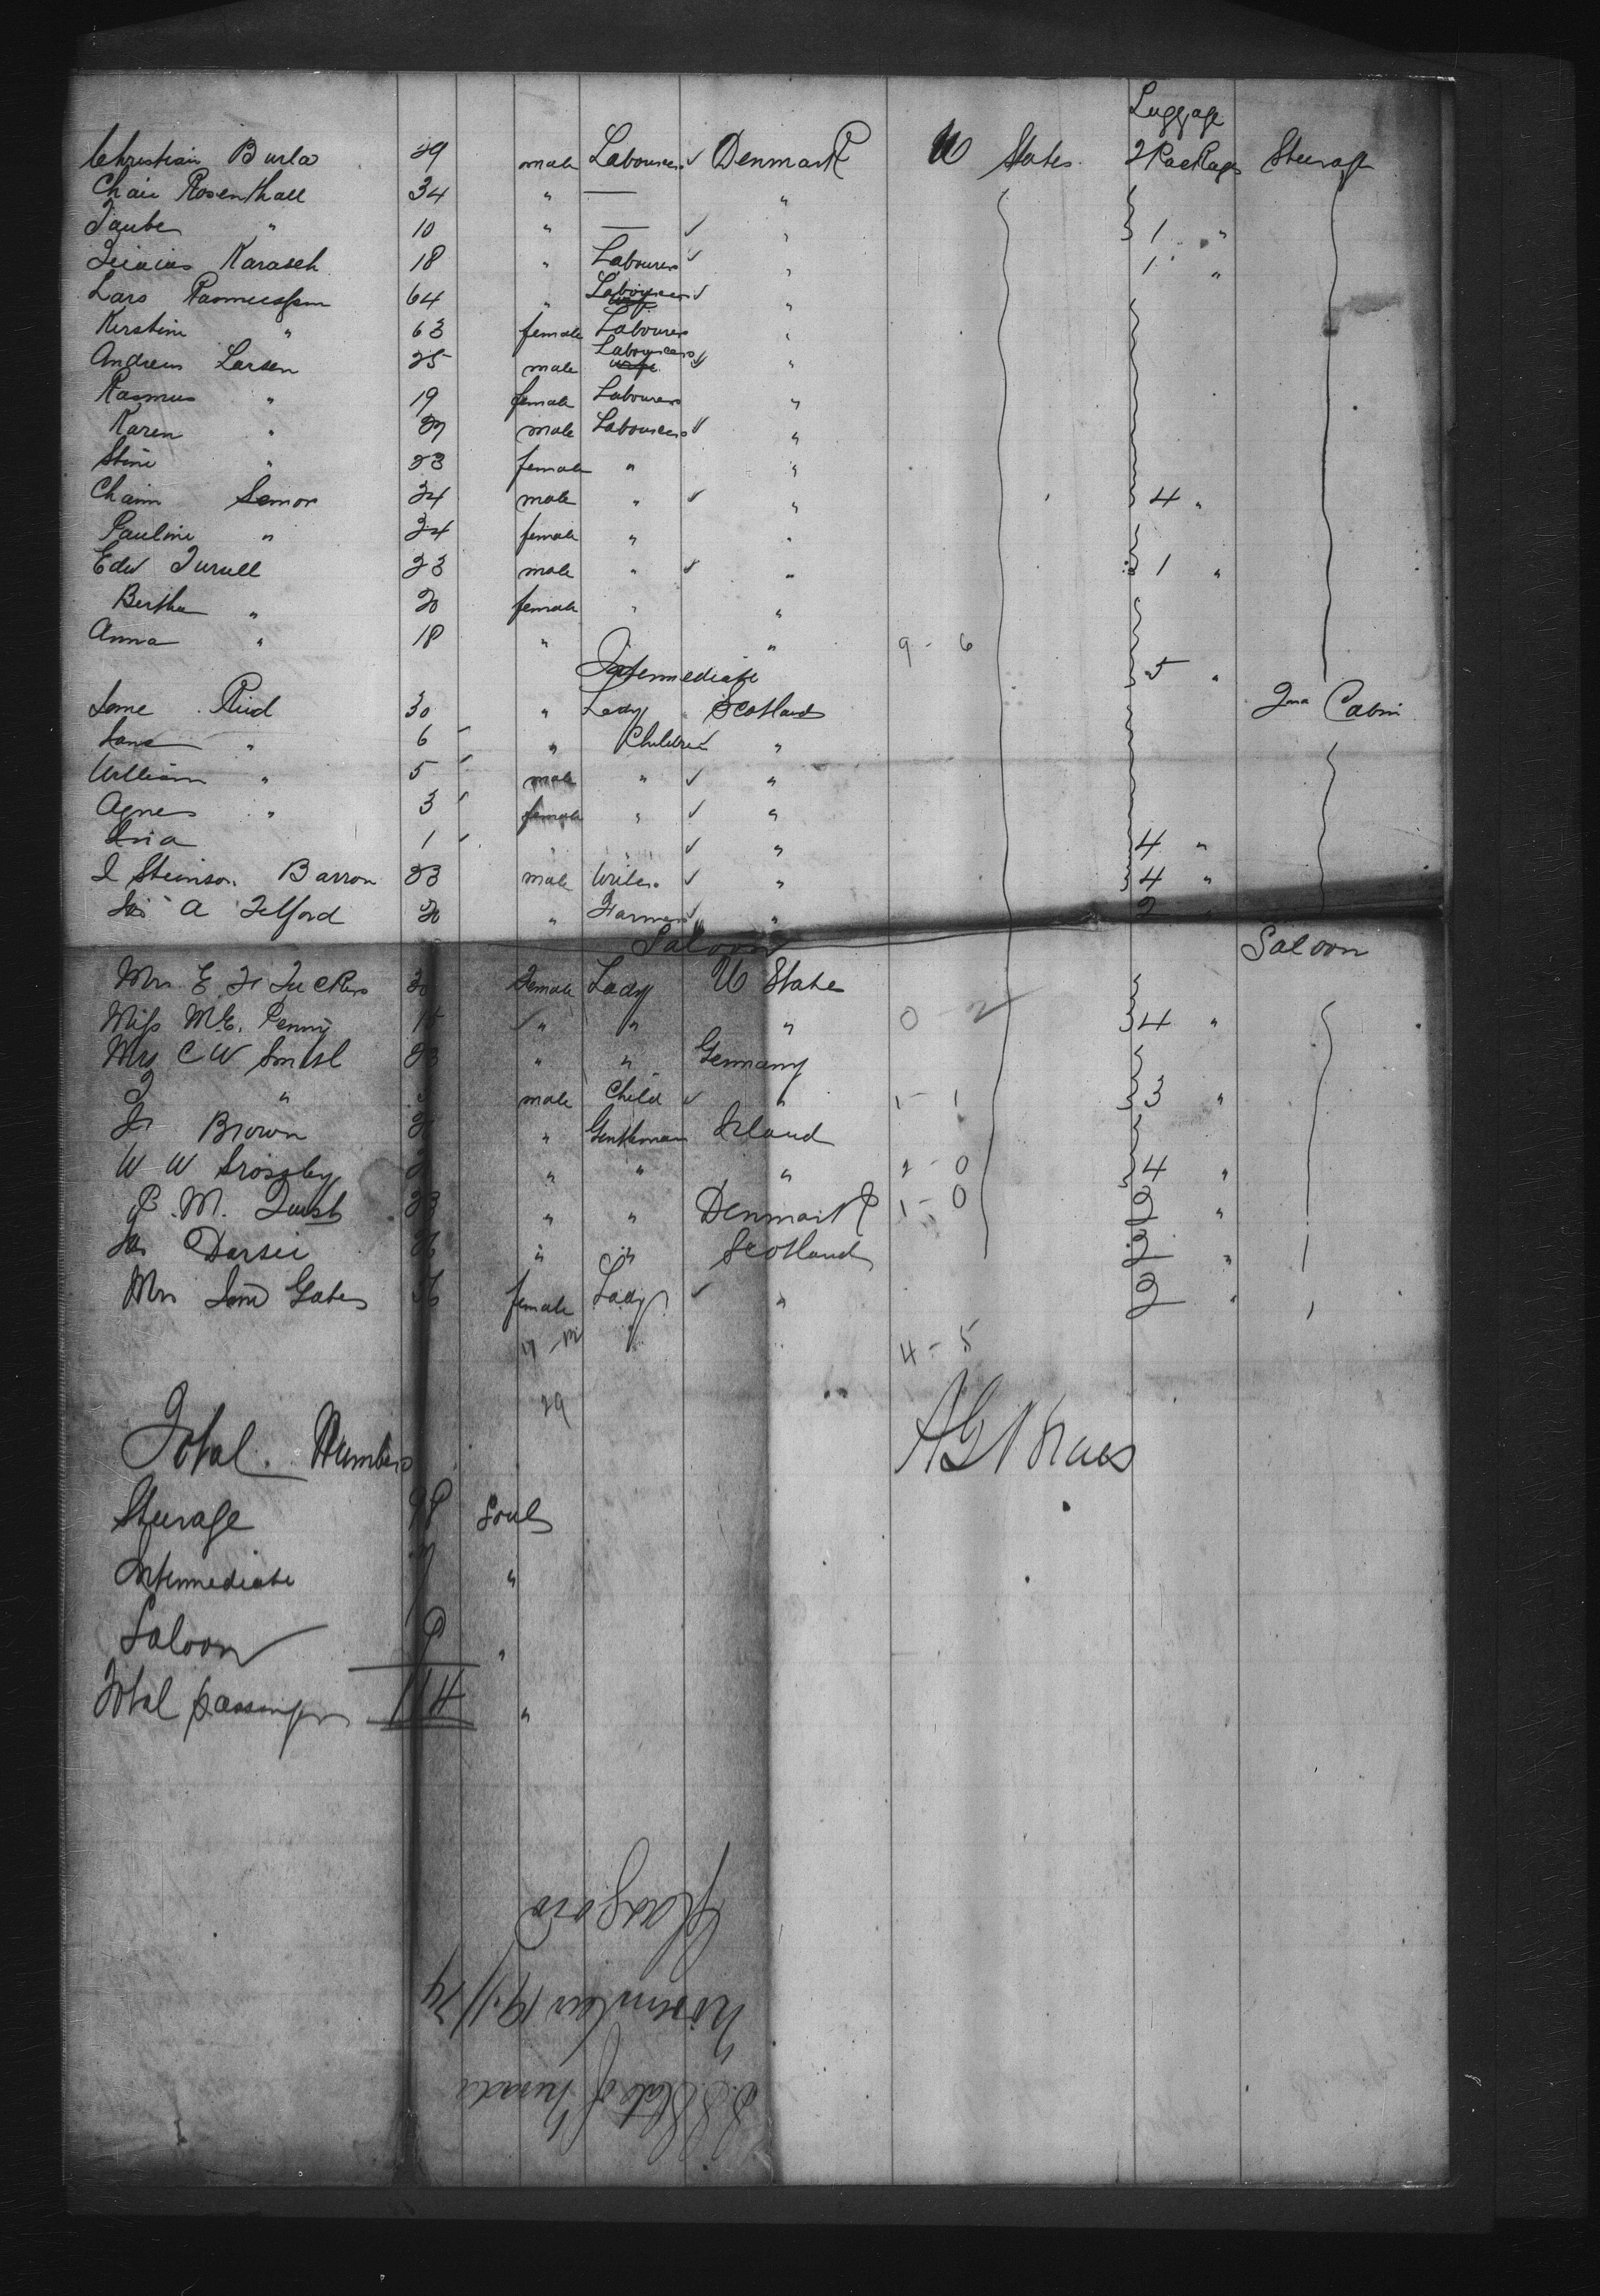 Luggage
Christian Burla 29 male Labourer Denmark U States 2 Packags Steerage
Chaie Rosenthall 34 " — "
Taube " 10 " — " 1 "
Karasch 18 " Labourer " 1 "
Lars Rasmussen 64 " Labourer "
Kerstine " 63 female Labourer "
Andreas Larsen 25 male Labourer "
Rasmus " 19 female Labourer "
Karen " 27 male Labourer "
Stine " 23 female " "
Chaim Semor 34 male " " 4 "
Pauline " 34 female " "
Edw Turull 23 male " " 1 "
Bertha " 20 female " "
Anna " 18 " " 9 - 6
Intermediate 5 "
Reid 30 " Lady Scotland 2nd Cabin
Jane " 6 " Children "
William " 5 male " "
Agnes " 3 female " "
1 " " " 4 "
J Steinson Barron 23 male Writer " 4 "
Jas A Telford 20 " Farmer " 2 "
Saloon Saloon
Mrs E Tuckers female Lady U State
Miss M. E. Penny 15 " " " 0 - 2 4 "
Mrs C W 23 " " Germany
" male Child " 1 - 1 3 "
Brown " Gentleman Irland
W W Crossby " " " 2 - 0 4 "
P. M. Quist 23 " " Denmark 1 - 0 2 "
Jas Darsie " " Scotland 2 "
Mrs Gates female Lady " 2 "
4 - 5
29
Total Numbers
Steerage 98 Souls
Intermediate 7 "
Saloon 9 "
Total passengers 114 "
S. S. State of Nevada
November 19th/74
Glasgow